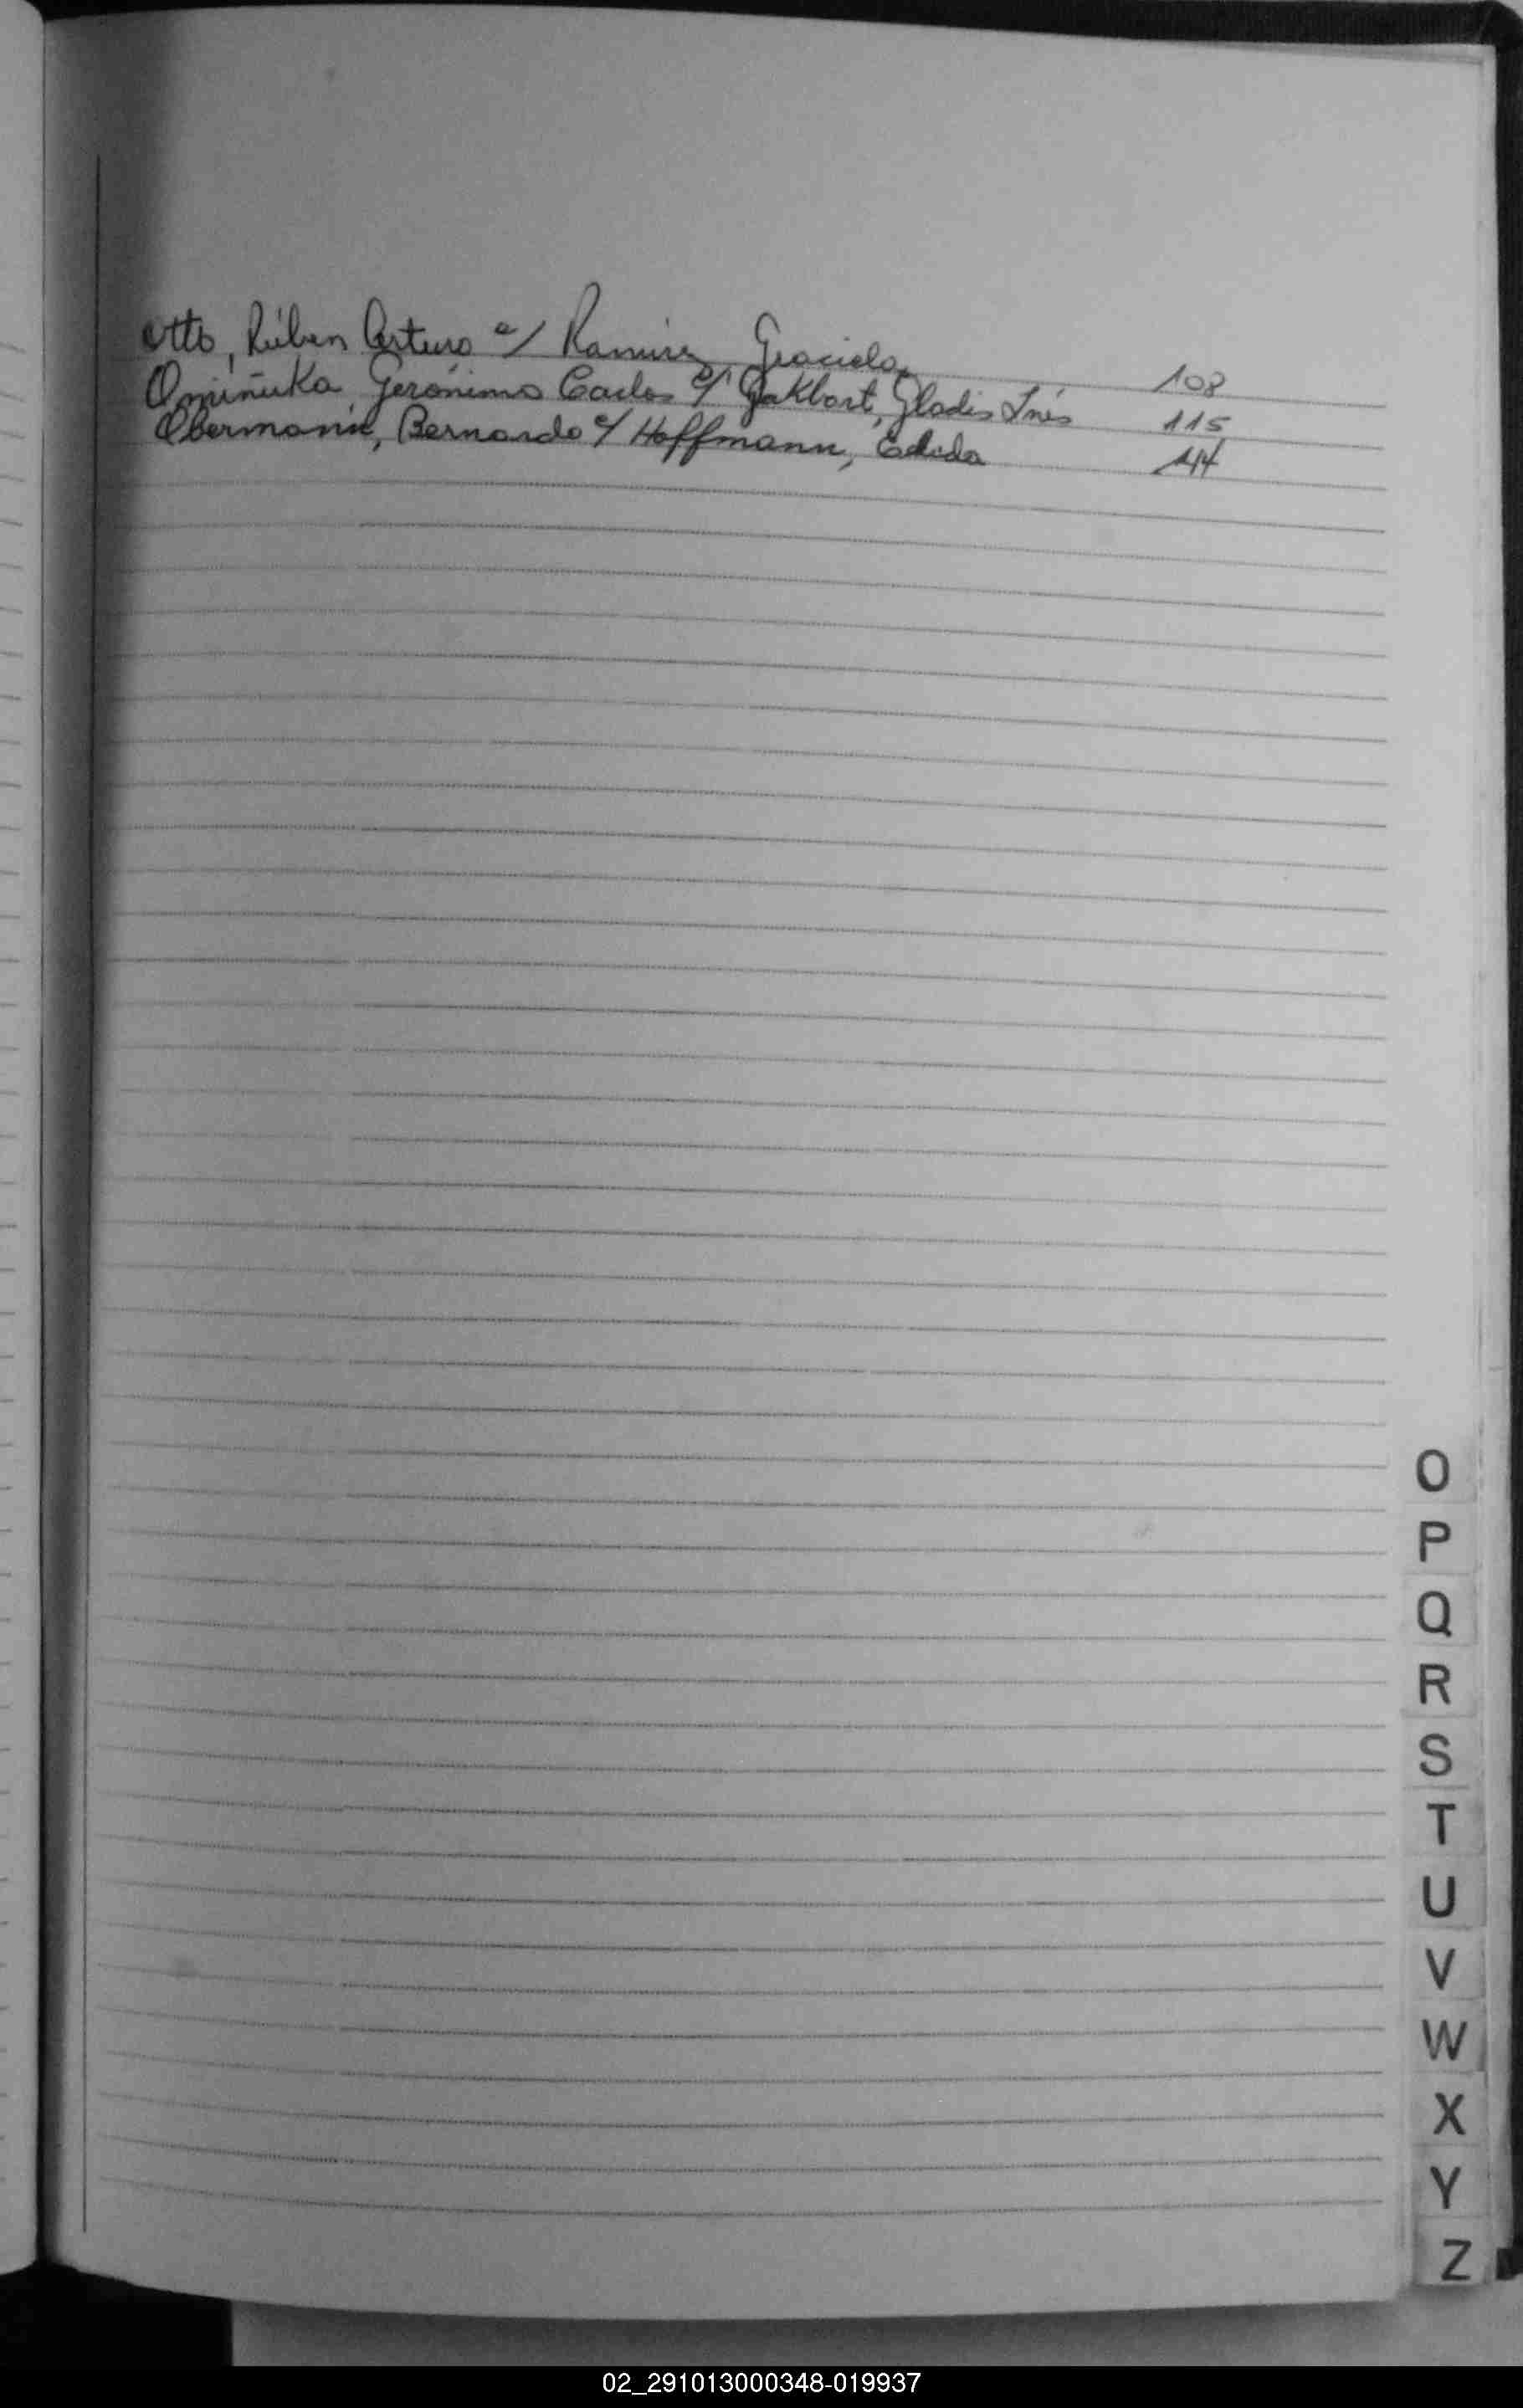 Otto, Rúben Arturo c/ Ramirez Graciela 108
Geronimo Carlos c/ Gladis Inés 115
Obermann, Bernardo c/ Hoffmann, 144
O
P
Q
R
S
T
U
V
W
X
Y
Z
02_291013000348-019937